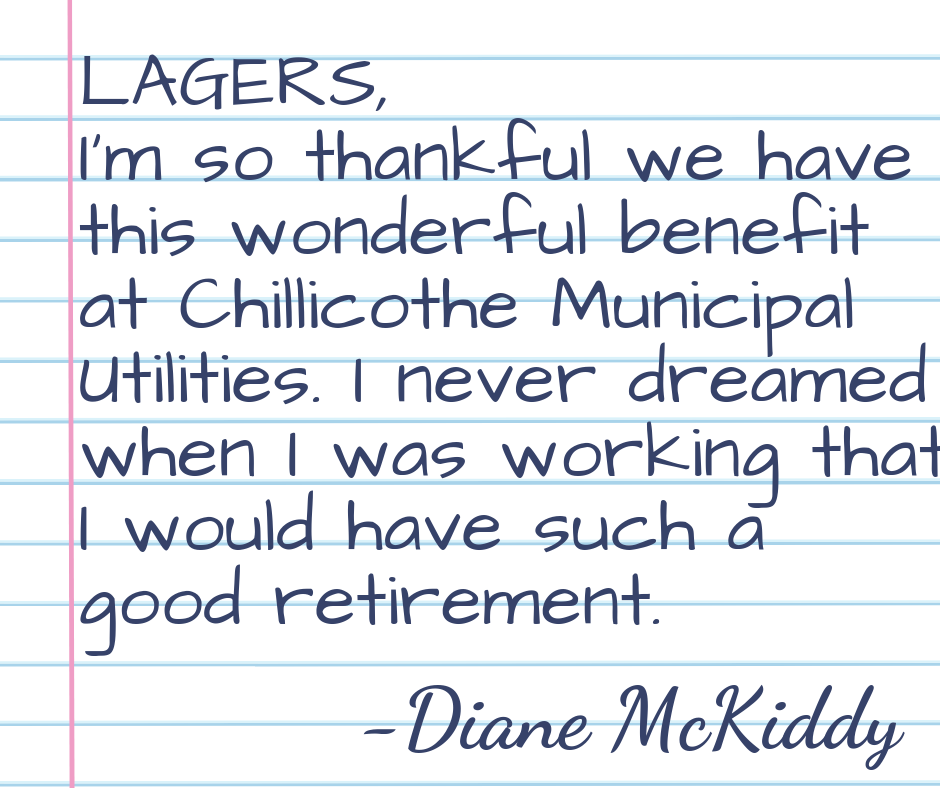 LAGERS,
I'm so thankful we have
this wonderful benefit
at Chillicothe Municipal
Utilities. I never dreamed
when I was working that
I would have such a
good retirement.
-Diane McKiddy